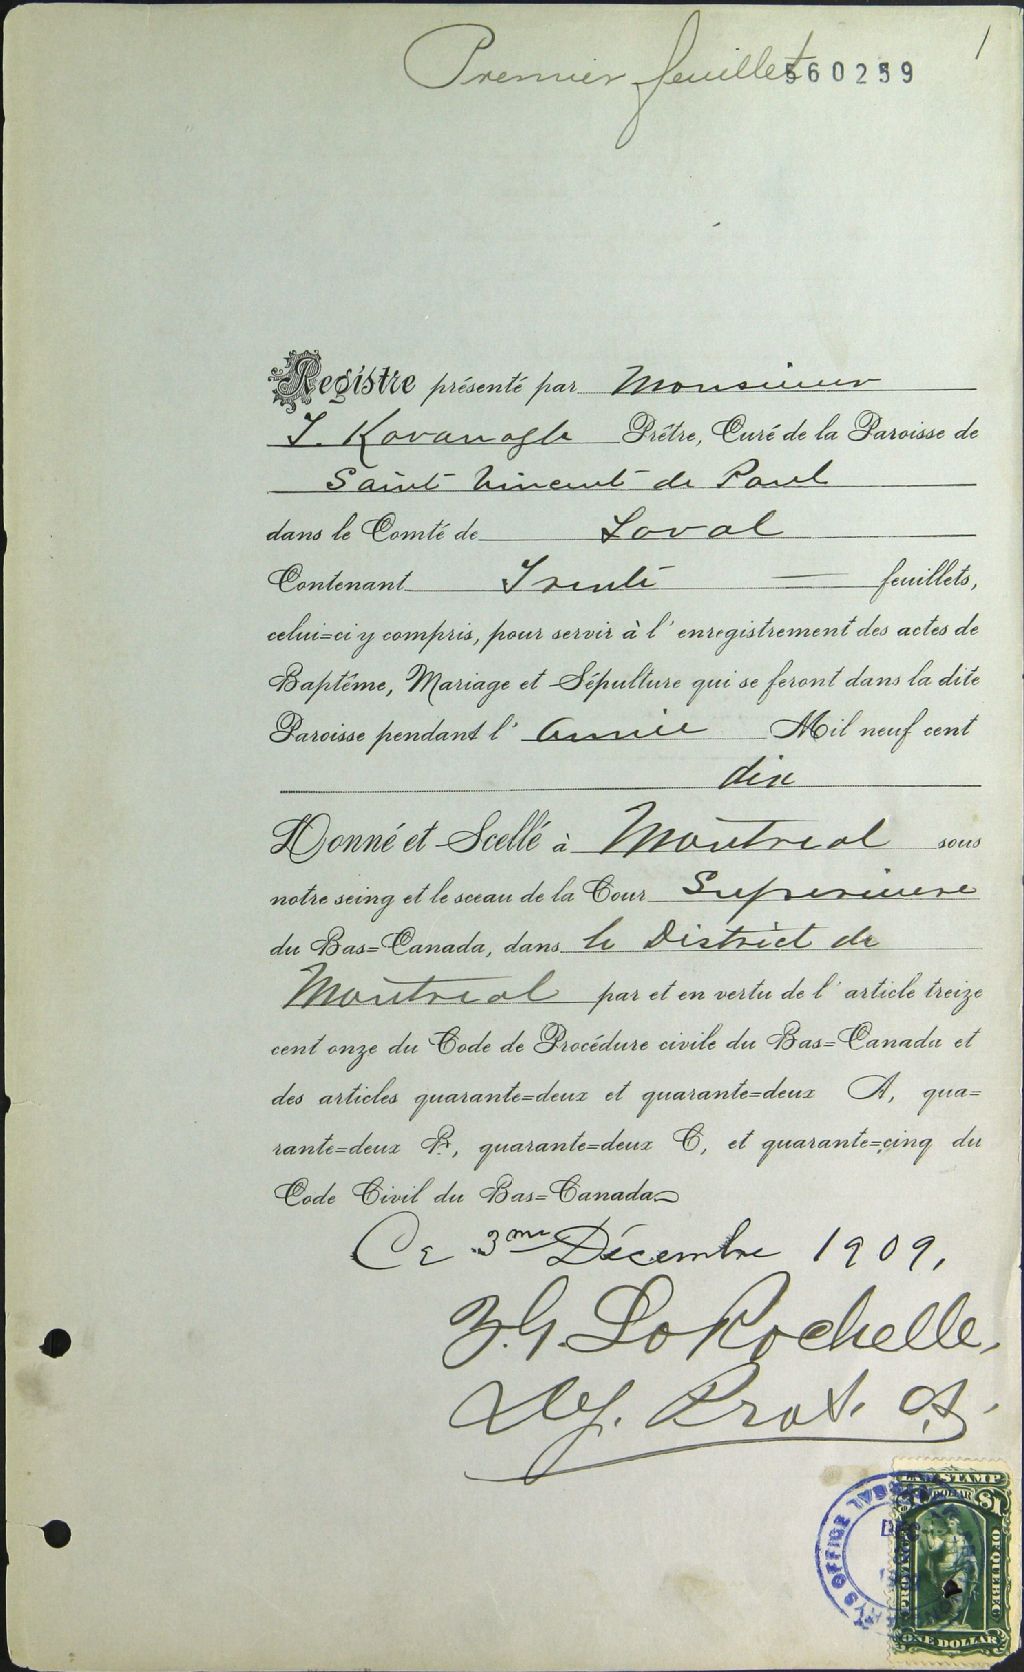 Premier feuillet 560259 1
Registre présenté par Monsieur
J. Kavanagh Prêtre, Curé de la Paroisse de
Saint Vincent de Paul
dans le Comté de Laval
Contenant Trente feuillets,
celui=ci y compris, pour servir à l'enregistrement des actes de
Baptême, Mariage et Sépulture qui se feront dans la dite
Paroisse pendant l'année Mil neuf cent
dix
Donné et Scellé à Montreal sous
notre seing et le sceau de la Cour Superieure
du Bas=Canada, dans le District de
Montreal par et en vertu de l'article treize
cent onze du Code de Procédure civile du Bas=Canada et
des articles quarante=deux et quarante=deux A, qua=
rante=deux B, quarante=deux C, et quarante=cinq du
Code Civil du Bas=Canada
Ce 3me Décembre 1909.
LaRochelle,
Dy. Prot.
LAW STAMP
$1
PROVINCE OF QUEBEC
ONE DOLLAR
OFFICE
DEC